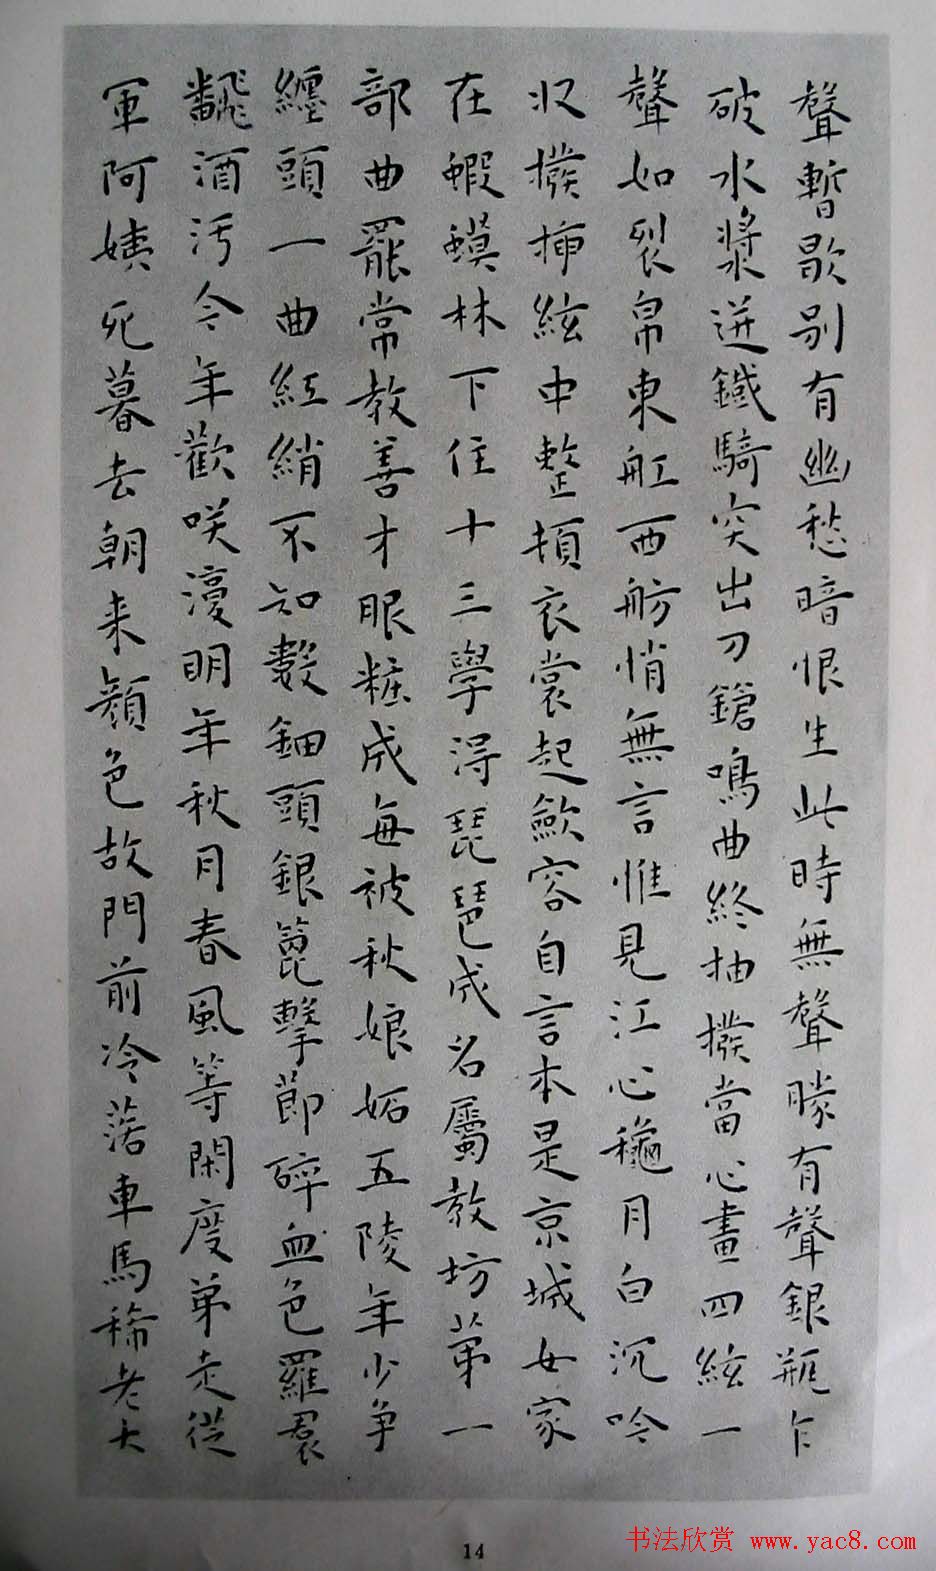 聲暫歇别有幽愁暗恨生此時無聲勝有聲銀瓶乍
破水漿迸鐵騎突出刀鎗鳴曲終抽撥當心畫四絃一
聲如裂帛東舡西舫悄無言惟見江心穐月白沉吟
収撥插絃中整頓衣裳起歛容自言本是京城女家
在蝦蟆林下住十三學得琵琶成名屬教坊第一
部曲罷常教善才眼粧成每被秋娘妬五陵年少争
纏頭一曲紅綃不知數鈿頭銀篦擊節碎血色羅裠
飜酒污今年歡咲復明年秋月春風等閑度弟走從
軍阿姨死暮去朝来顔色故門前冷落車馬稀老大
14
书法欣赏 www.yac8.com